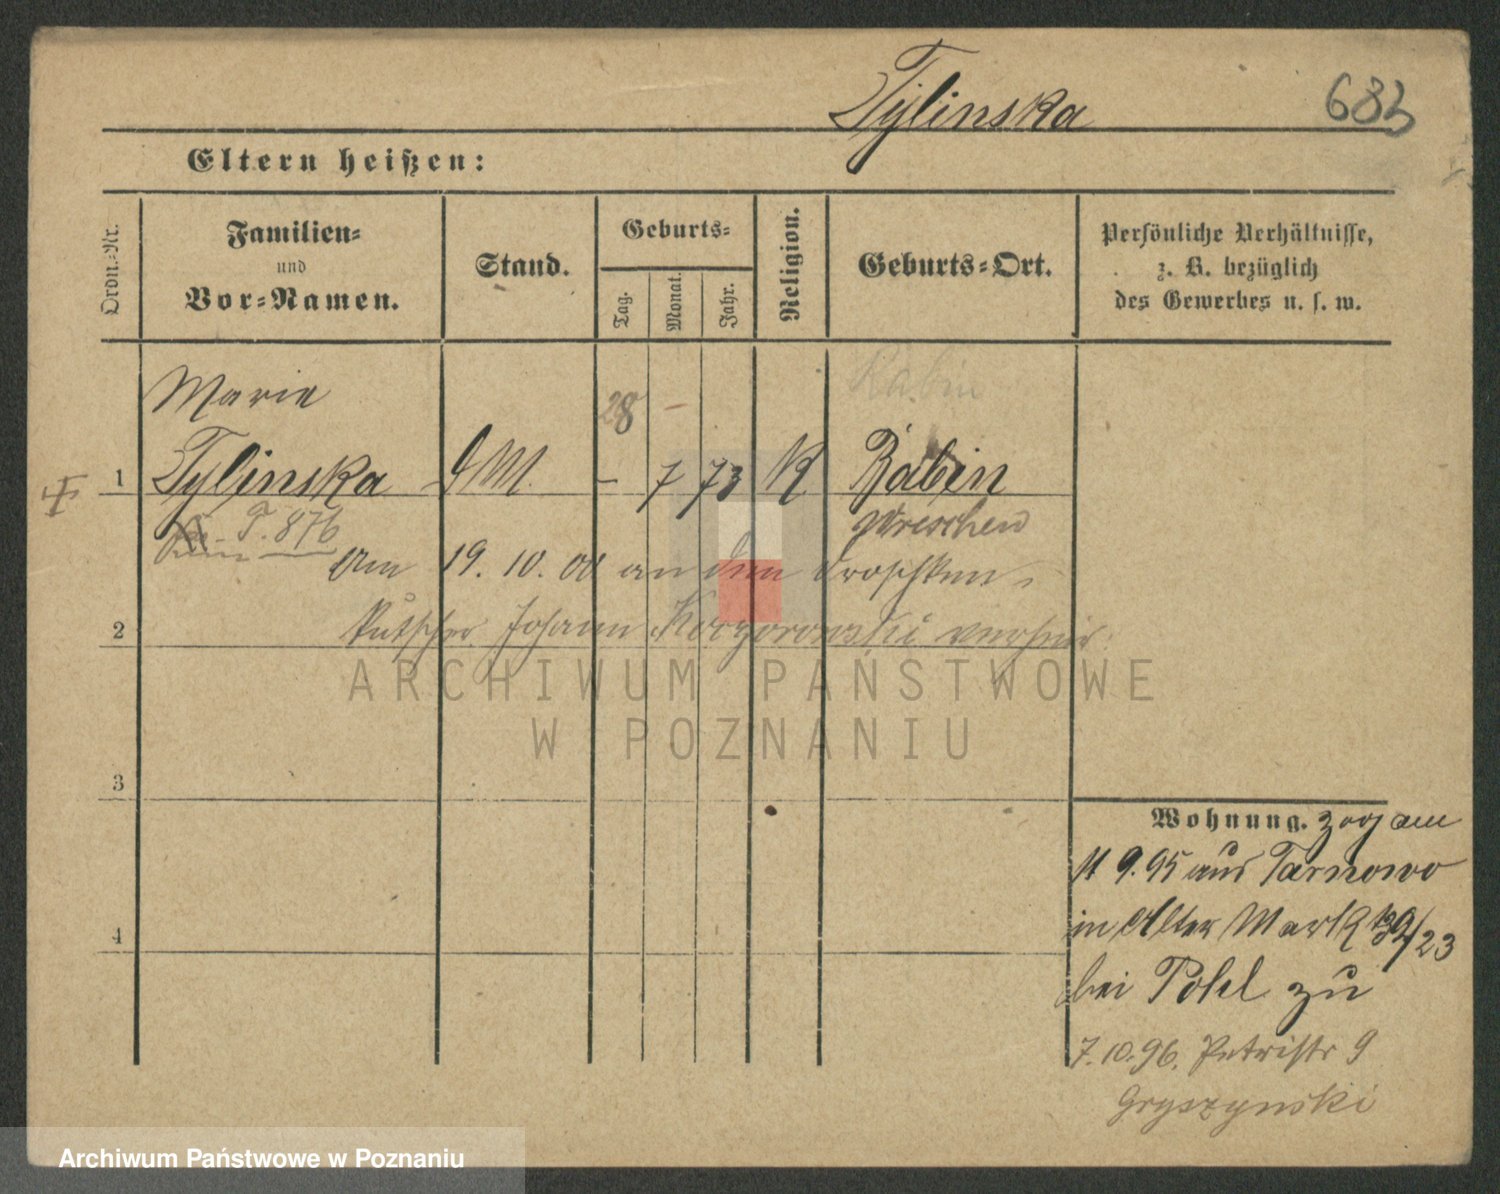 Tylinska 683
Eltern heißen:
Ordn.-Nr.
Familien-
und
Vor-Namen.
Stand.
Geburts-
Tag. Monat. Jahr.
Religion.
Geburts-Ort.
Persönliche Verhältnisse,
z. B. bezüglich
des Gewerbes u. s. w.
Marie 28 - Babin
1 Tylinska DM. - 7 73 K Babin
T. 876 Wreschen
Am 19. 10. 00 an den Droschken-
2 kutscher Johann verheir.
ARCHIWUM PAŃSTWOWE
W POZNANIU
3
4
Wohnung. zog am
11 9. 95 aus Tarnowo
in Alter Markt /23
bei Pohl zu
7. 10. 96. Petristr 9
Gryszynski
Archiwum Państwowe w Poznaniu